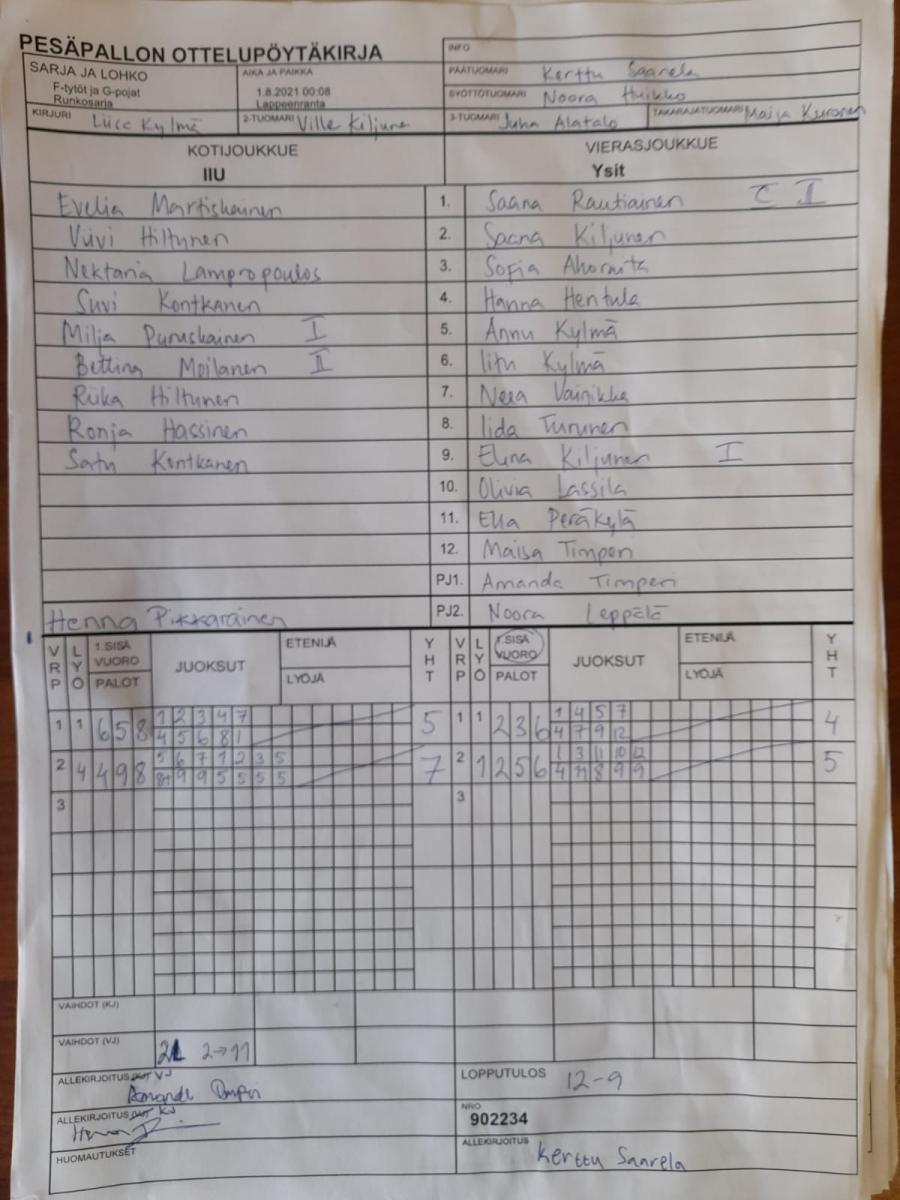 PESÄPALLON OTTELUPÖYTÄKIRJA
INFO
SARJA JA LOHKO
F-tytöt ja G-pojat
Runkosarja
AIKA JA PAIKKA
1.8.2021 00:08
Lappeenranta
PÄÄTUOMARI Kerttu Saarela
SYÖTTÖTUOMARI Noora Huikko
KIRJURI Liisa Kylmä
2-TUOMARI Ville Kiljunen
3-TUOMARI Juha Alatalo
TAKARAJATUOMARI Maija Kuronen
KOTIJOUKKUE
IIU
VIERASJOUKKUE
Ysit
Evelia Martiskainen 1. Saana Rautiainen C II
Viivi Hiltunen 2. Saana Kiljunen
Nektaria Lampropoulos 3. Sofia
Suvi Kontkanen 4. Hanna Hentula
Milja Puruskainen I 5. Annu Kylmä
Bettina Moilanen II 6. Iitu Kylmä
Riika Hiltunen 7. Neea Vainikka
Ronja Hassinen 8. Iida Turunen
Satu Kontkanen 9. Elina Kiljunen I
10. Olivia Lassila
11. Ella Peräkylä
12. Maisa Timperi
PJ1. Amanda Timperi
Henna Pikkarainen PJ2. Noora Leppälä
VRP LYÖ 1.SISÄ VUORO PALOT JUOKSUT ETENIJÄ LYÖJÄ YHT
VRP LYÖ 1.SISÄ VUORO PALOT JUOKSUT ETENIJÄ LYÖJÄ YHT
1 1 6 5 8 1 2 3 4 7 5 1 1 2 3 6 1 4 5 7 4
4 5 6 8 1 4 7 9 12
2 4 4 9 8 5 6 7 1 2 3 5 7 2 1 2 5 6 1 3 11 10 12 5
9 9 5 5 5 5 4 11 8 9 9
3 3
VAIHDOT (KJ)
VAIHDOT (VJ) 2→11
ALLEKIRJOITUS VJ
Amanda
LOPPUTULOS 12-9
ALLEKIRJOITUS KJ
NRO
902234
HUOMAUTUKSET
ALLEKIRJOITUS
Kerttu Saarela